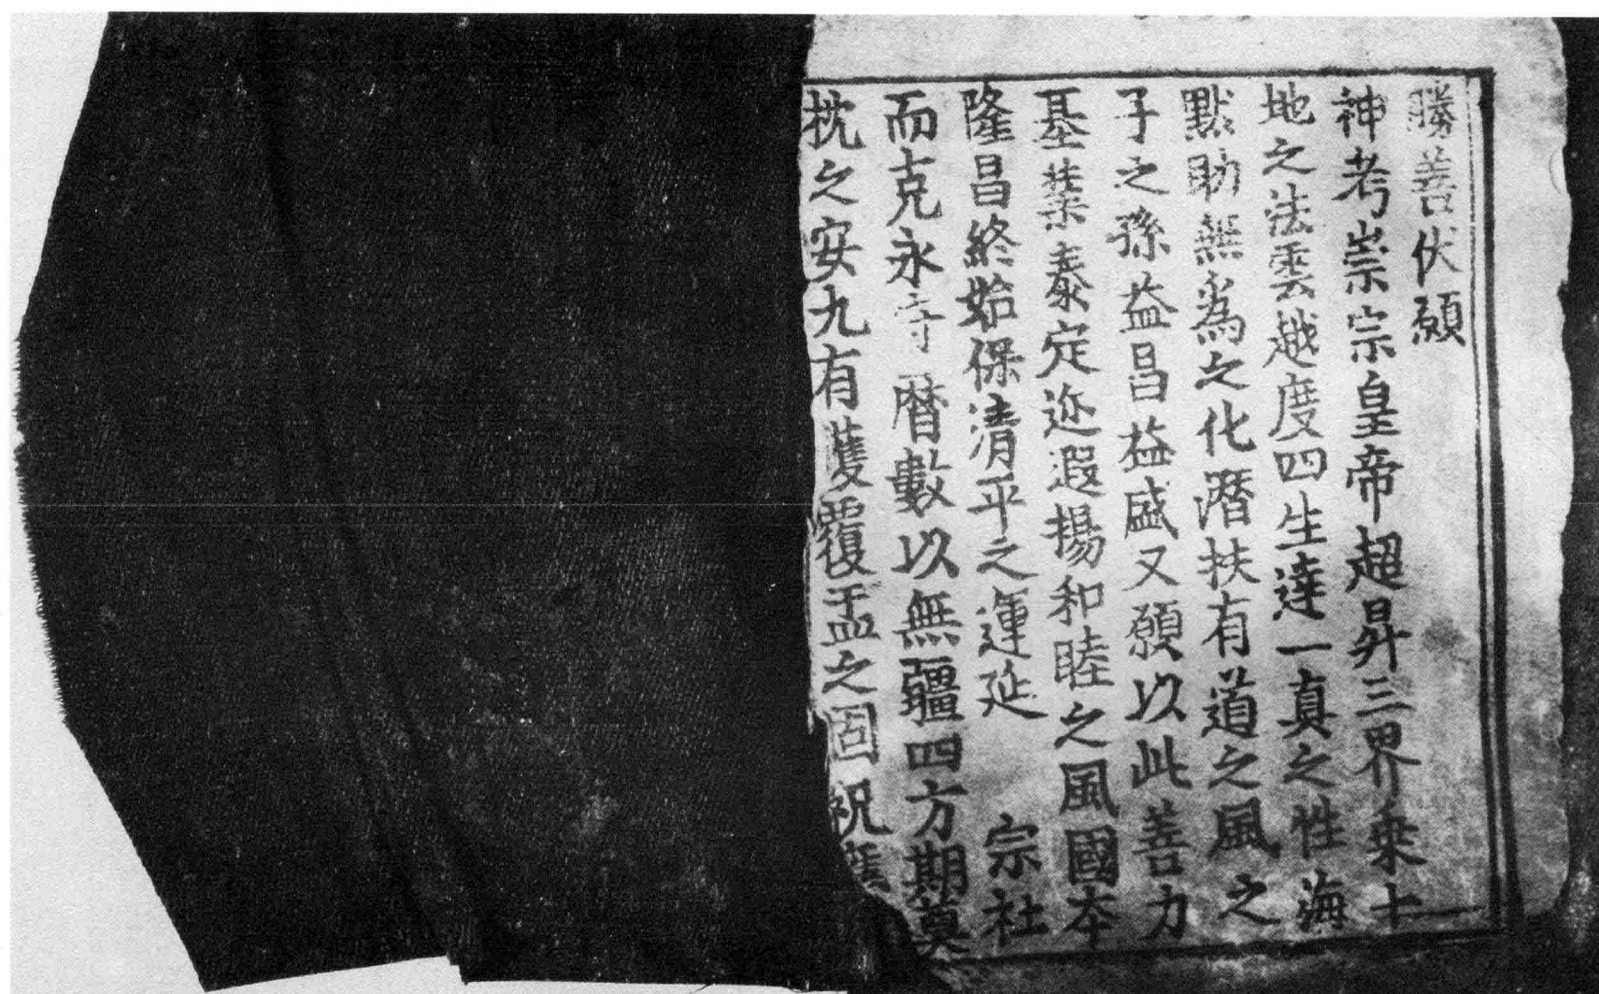 勝善伏願
神考崇宗皇帝超昇三界乗十
地之法雲越度四生達一真之性海
默助無為之化潛扶有道之風之
子之孫益昌益盛又願以此善力
基業泰定迩遐揚和睦之風國本
隆昌終始保清平之運延 宗社
而克永守 曆數以無疆四方期奠
枕之安九有獲覆盂之固祝